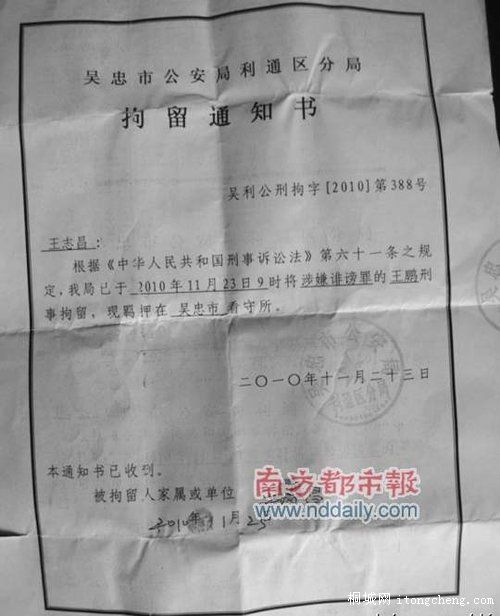 吴忠市公安局利通区分局
拘留通知书
吴利公刑拘字[2010]第388号
王志昌:
根据《中华人民共和国刑事诉讼法》第六十一条之规
定,我局已于 2010年11月23日9时将涉嫌诽谤罪的王鹏刑
事拘留,现羁押在 吴忠市 看守所。
二〇一〇年十一月二十三日
本通知书已收到。
被拘留人家属或单位
2010年 1月25
南方都市報
www.nddaily.com
桐城网 itongcheng.com